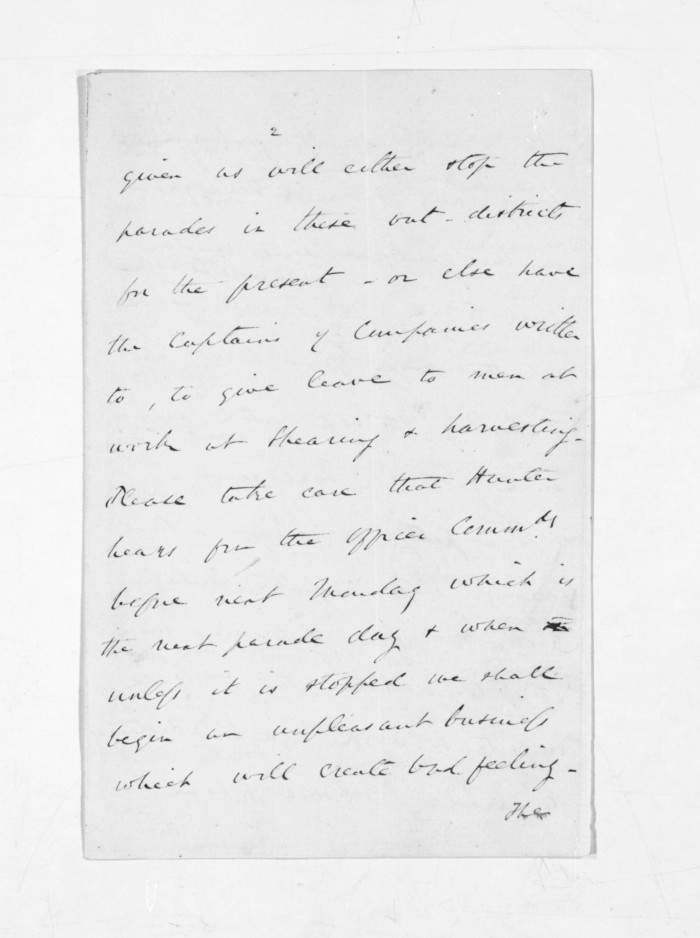 2
given as will either stop the
parades in these out-districts
for the present - or else have
the Captains of Companies written
to, to give leave to men at
work at Shearing & harvesting -
Please take care that Hunter
hears from the Officer Commdg
before next Monday which is
the next parade day & when
unless it is stopped we shall
begin an unpleasant business
which will create bad feeling -
The